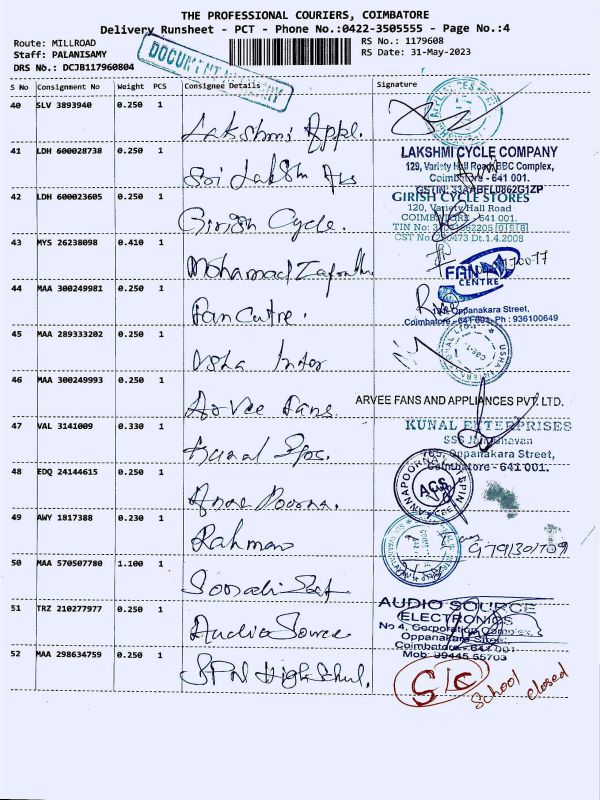 THE PROFESSIONAL COURIERS, COIMBATORE
Delivery Runsheet - PCT - Phone No.:0422-3505555 - Page No.:4
Route: MILLROAD
RS No.: 1179608
Staff: PALANISAMY
RS Date: 31-May-2023
DRS No.: DCJB117960804
DOCUMENT
S No Consignment No Weight PCS Consignee Details Signature
40 SLV 3893940 0.250 1
Lakshmi Appl.
41 LDH 600028738 0.250 1
LAKSHMI CYCLE COMPANY
129, Variety Hall Road, BBC Complex,
Coimbatore - 641 001.
GSTIN: 33AABFL0862G1ZP
Sri Lakshmi
42 LDH 600023605 0.250 1
GIRISH CYCLE STORES
120, Variety Hall Road
COIMBATORE - 641 001.
Girish Cycle.
43 MYS 26238098 0.410 1
Mohamad
44 MAA 300249981 0.250 1
FAN
CENTRE
Oppanakara Street,
Coimbatore - 641 001. Ph : 936100649
Fan Cutre.
45 MAA 289333202 0.250 1
Usha Inter
46 MAA 300249993 0.250 1
ARVEE FANS AND APPLIANCES PVT. LTD.
ArVee Fans
47 VAL 3141009 0.330 1
KUNAL ENTERPRISES
Oppanakara Street,
Coimbatore - 641 001.
Kunal
48 EDQ 24144615 0.250 1
ANNAPOORNA SPIN
ACS
49 AWY 1817388 0.230 1
Rahman
9791301709
50 MAA 570507780 1.100 1
51 TRZ 210277977 0.250 1
AUDIO SOURCE
ELECTRONICS
No 4, Corporation Complex,
Oppanakara Street
Coimbatore - 641 001
Mob: 99445 55703
Audio Source
52 MAA 298634759 0.250 1
High School.
S/C
School closed